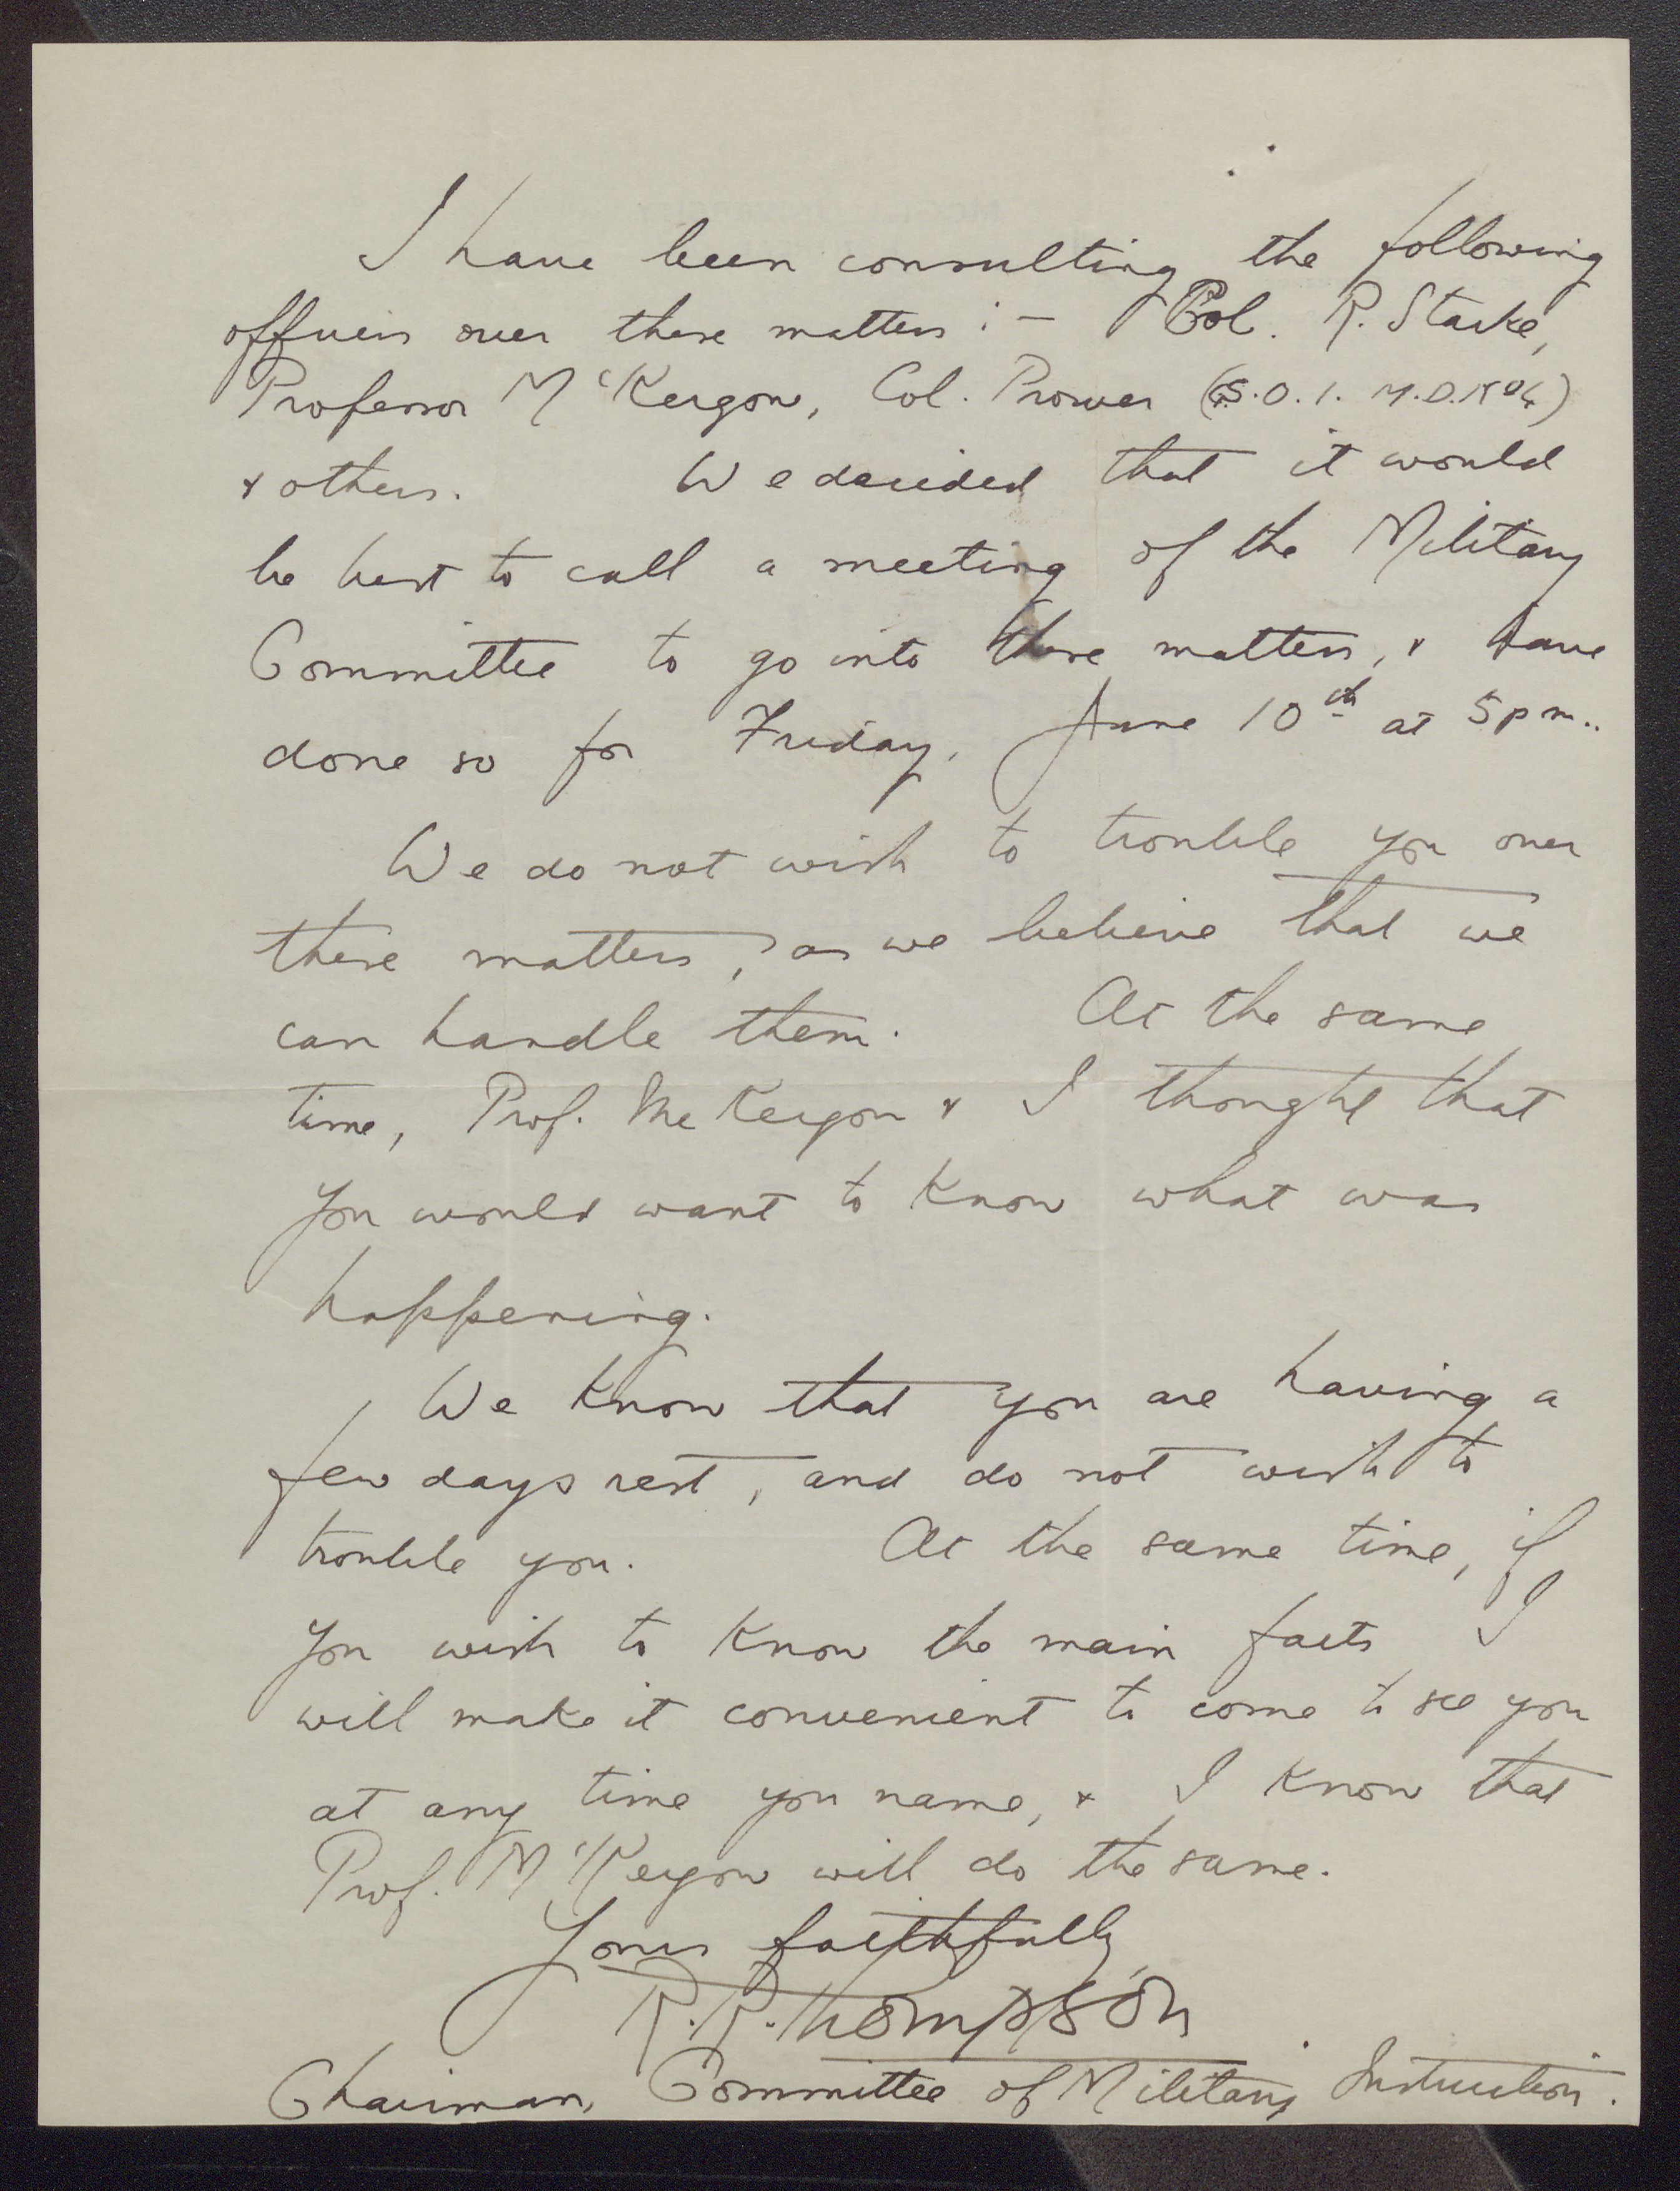 I have been consulting the following
officers over these matters :- Col. R. Starke,
Professor McKergow, Col. Prower (G.S.O.1. M.D. No 4)
& others. We decided that it would
be best to call a meeting of the Military
Committee to go into these matters, & have
done so for Friday, June 10th at 5 pm..
We do not wish to trouble you over
these matters, as we believe that we
can handle them. At the same
time, Prof. McKergow & I thought that
you would want to know what was
happening.
We know that you are having a
few days rest, and do not wish to
trouble you. At the same time, if
you wish to know the main facts I
will make it convenient to come to see you
at any time you name, & I know that
Prof. McKergow will do the same.
Yours faithfully,
R.R. Thompson
Chairman, Committee of Military Instruction.